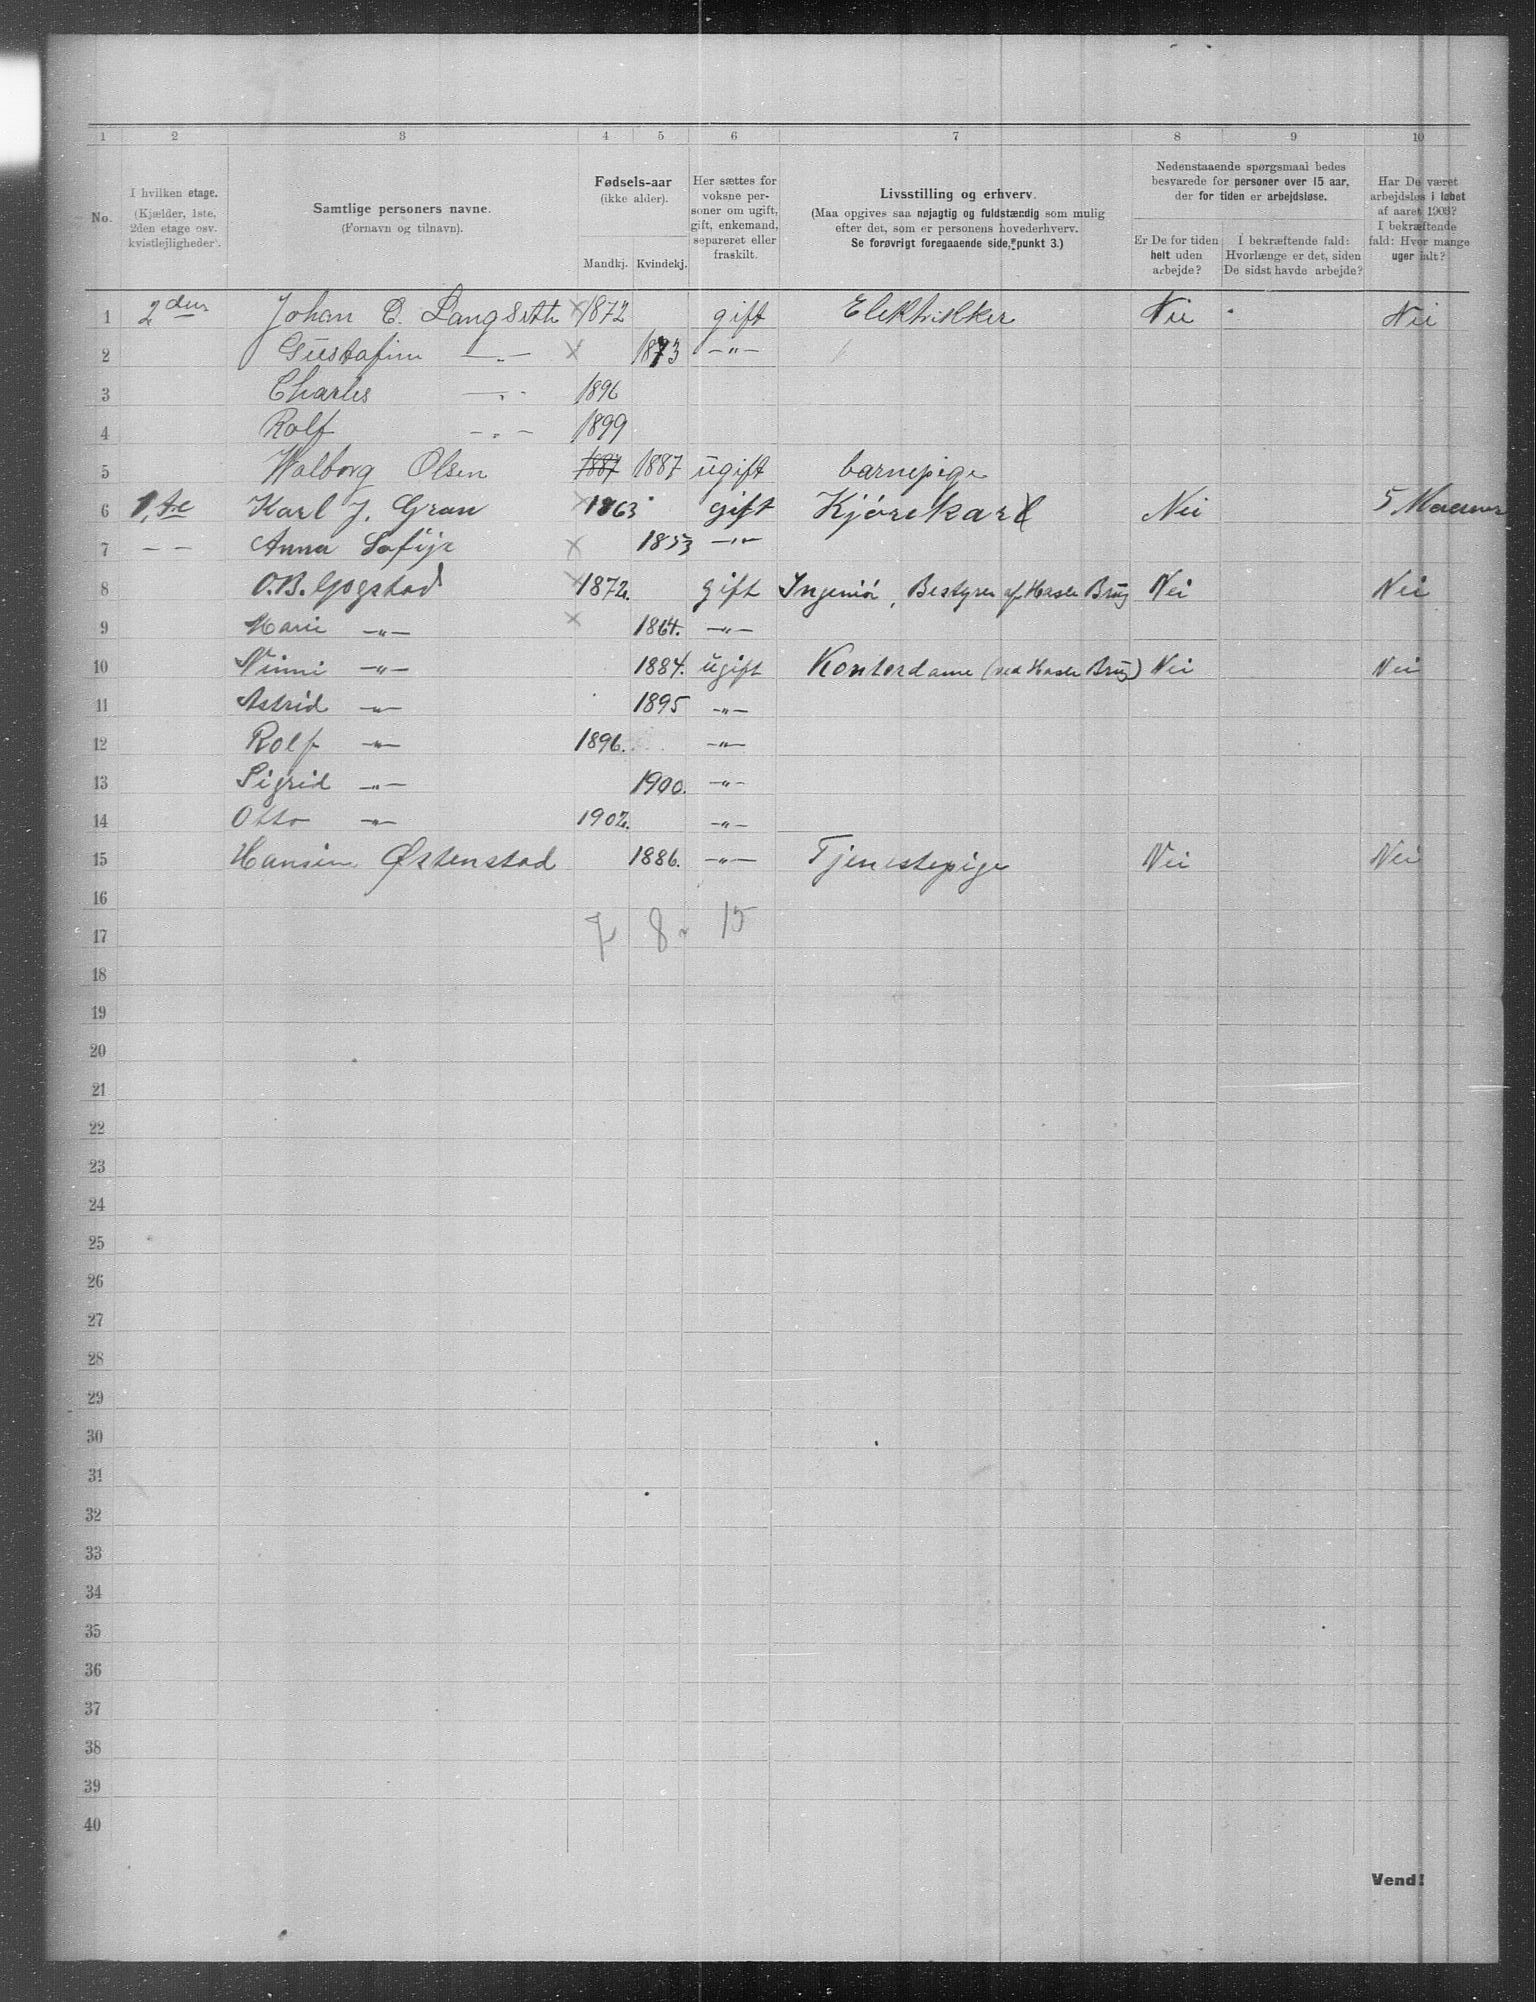 1 2 3 4 5 6 7 8 9 10
No.
I hvilken etage.
(Kjælder, 1ste,
2den etage osv.
kvistlejligheder).
Samtlige personers navne.
(Fornavn og tilnavn).
Fødsels-aar
(ikke alder).
Mandkj. Kvindekj.
Her sættes for
voksne per-
soner om ugift,
gift, enkemand,
separeret eller
fraskilt.
Livsstilling og erhverv.
(Maa opgives saa nøjagtig og fuldstændig som mulig
efter det, som er personens hovederhverv.
Se forøvrigt foregaaende side, punkt 3.)
Nedenstaaende spørgsmaal bedes
besvarede for personer over 15 aar,
der for tiden er arbejdsløse.
Er De for tiden
helt uden
arbejde?
I bekræftende fald:
Hvorlænge er det, siden
De sidst havde arbejde?
Har De været
arbejdsløs i løbet
af aaret 1903?
I bekræftende
fald: Hvor mange
uger ialt?
1 2den Johan C. Langseth × 1872 gift Elektrikker Nei Nei
2 Gustafine —„— × 1873 —„—
3 Charles —„— 1896
4 Rolf —„— 1899
5 Walborg Olsen 1887 1887 ugift barnepige
6 1,te Karl J. Gran × 1863 gift Kjørekarl Nei 5 Maaneder
7 — — Anna Sofije × 1853 —„—
8 O.B. Gogstad × 1872. gift Ingeniør, Bestyrer af Hasle Brug Nei Nei
9 Marie —„— × 1864. —„—
10 Ninni —„— 1884. ugift Kontordame (ved Hasle Brug) Nei Nei
11 Astrid —„— 1895 —„—
12 Rolf —„— 1896. —„—
13 Sigrid —„— 1900. —„—
14 Otto —„— 1902. —„—
15 Hansine Østenstad 1886. —„— Tjenestepige Nei Nei
16
17 7 8 15
18
19
20
21
22
23
24
25
26
27
28
29
30
31
32
33
34
35
36
37
38
39
40
Vend!